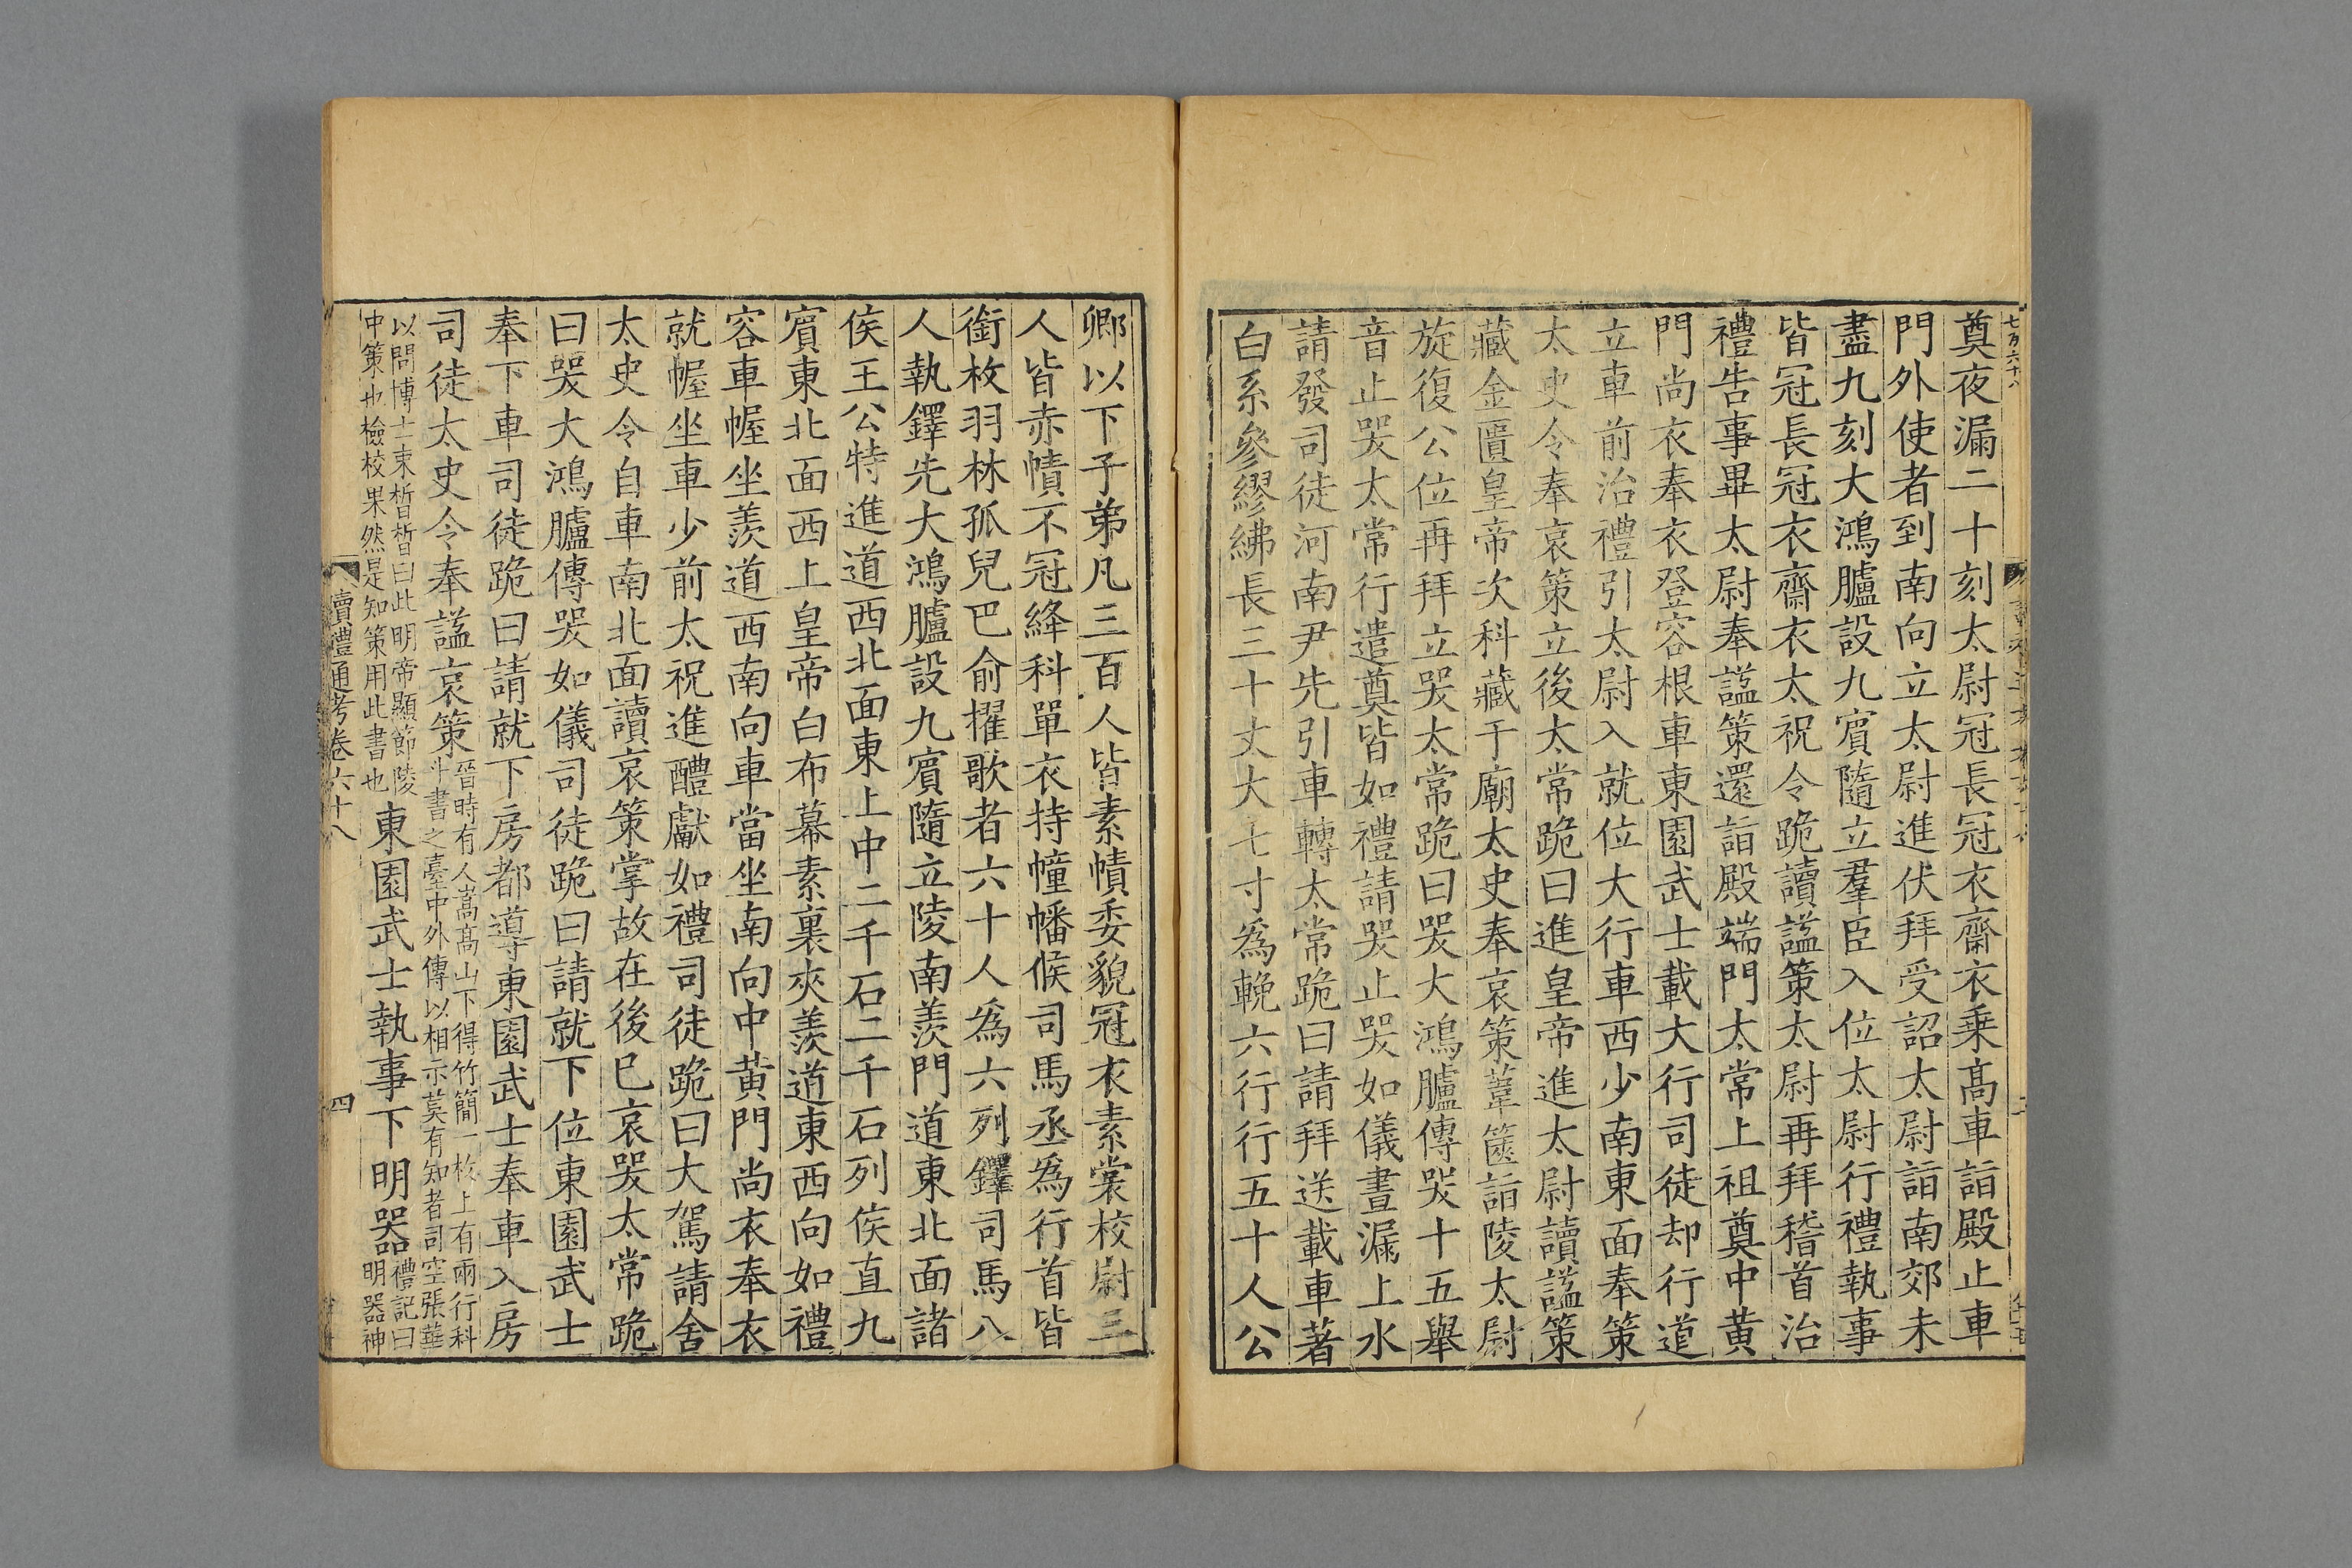 奠夜漏二十刻太尉冠長冠衣齋衣乗髙車詣殿止車
門外使者到南向立太尉進伏拜受詔太尉詣南郊未
盡九刻大鴻臚設九賔隨立羣臣入位太尉行禮執事
皆冠長冠衣齋衣太祝令跪讀諡策太尉再拜稽首治
禮告事畢太尉奉諡策還詣殿端門太常上祖奠中黄
門尚衣奉衣登容根車東園武士載大行司徒却行道
立車前治禮引太尉入就位大行車西少南東面奉策
太史令奉哀策立後太常跪曰進皇帝進太尉讀諡策
藏金匱皇帝次科藏于廟太史奉哀策葦篋詣陵太尉
旋復公位再拜立哭太常跪曰哭大鴻臚傳哭十五舉
音止哭太常行遣奠皆如禮請哭止哭如儀晝漏上水
請發司徒河南尹先引車轉太常跪曰請拜送載車著
白系參繆紼長三十丈大七寸為輓六行行五十人公
卿以下子弟凡三百人皆素幘委貌冠衣素裳校尉三
人皆赤幘不冠絳科單衣持幢幡候司馬丞為行首皆
銜枚羽林孤兒巴俞擢歌者六十人為六列鐸司馬八
人執鐸先大鴻臚設九賔隨立陵南羨門道東北面諸
侯王公特進道西北面東上中二千石二千石列侯直九
賔東北面西上皇帝白布幕素裏夾羨道東西向如禮
容車幄坐羨道西南向車當坐南向中黄門尚衣奉衣
就幄坐車少前太祝進醴獻如禮司徒跪曰大駕請舍
太史令自車南北面讀哀策掌故在後已哀哭太常跪
曰哭大鴻臚傳哭如儀司徒跪曰請就下位東園武士
奉下車司徒跪曰請就下房都導東園武士奉車入房
司徒太史令奉諡哀策晉時有人嵩髙山下得竹簡一枚上有兩行科
斗書之臺中外傳以相示莫有知者司空張華
以問博士束晳晳曰此明帝顯節陵
中策也檢校果然是知策用此書也東園武士執事下明器禮記曰
明器神
讀禮通考卷六十八
四